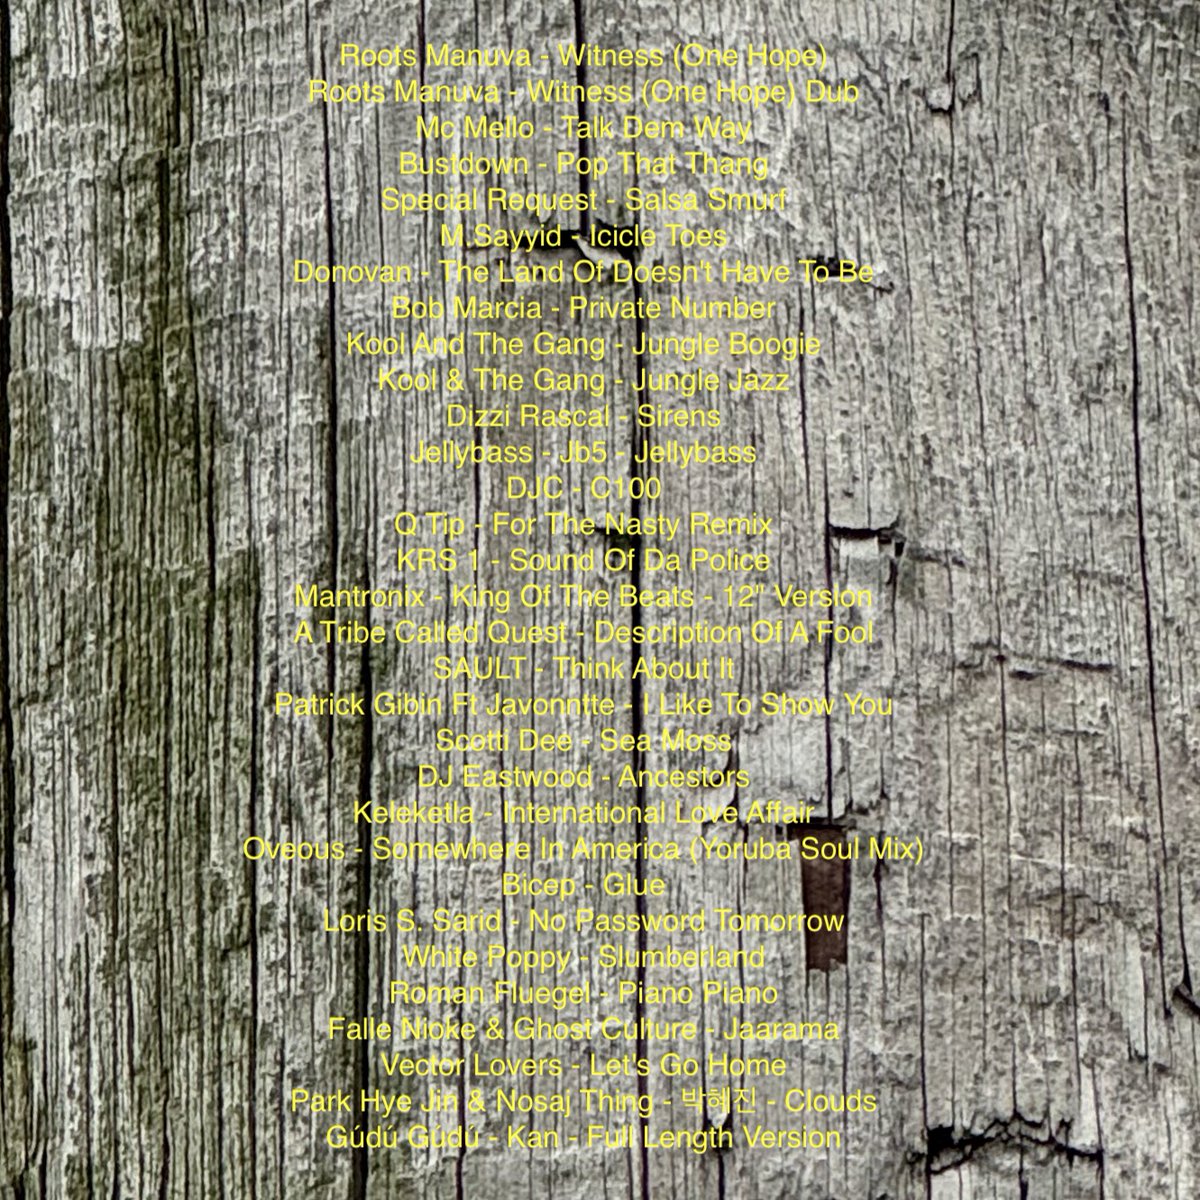 Roots Manuva - Witness (One Hope)
Roots Manuva - Witness (One Hope) Dub
Mc Mello - Talk Dem Way
Bustdown - Pop That Thang
Special Request - Salsa Smurf
M.Sayyid - Icicle Toes
Donovan - The Land Of Doesn't Have To Be
Bob Marcia - Private Number
Kool And The Gang - Jungle Boogie
Kool & The Gang - Jungle Jazz
Dizzi Rascal - Sirens
Jellybass - Jb5 - Jellybass
DJC - C100
Q Tip - For The Nasty Remix
KRS 1 - Sound Of Da Police
Mantronix - King Of The Beats - 12" Version
A Tribe Called Quest - Description Of A Fool
SAULT - Think About It
Patrick Gibin Ft Javonntte - I Like To Show You
Scotti Dee - Sea Moss
DJ Eastwood - Ancestors
Keleketla - International Love Affair
Oveous - Somewhere In America (Yoruba Soul Mix)
Bicep - Glue
Loris S. Sarid - No Password Tomorrow
White Poppy - Slumberland
Roman Fluegel - Piano Piano
Falle Nioke & Ghost Culture - Jaarama
Vector Lovers - Let's Go Home
Park Hye Jin & Nosaj Thing - 박혜진 - Clouds
Gúdú Gúdú - Kan - Full Length Version